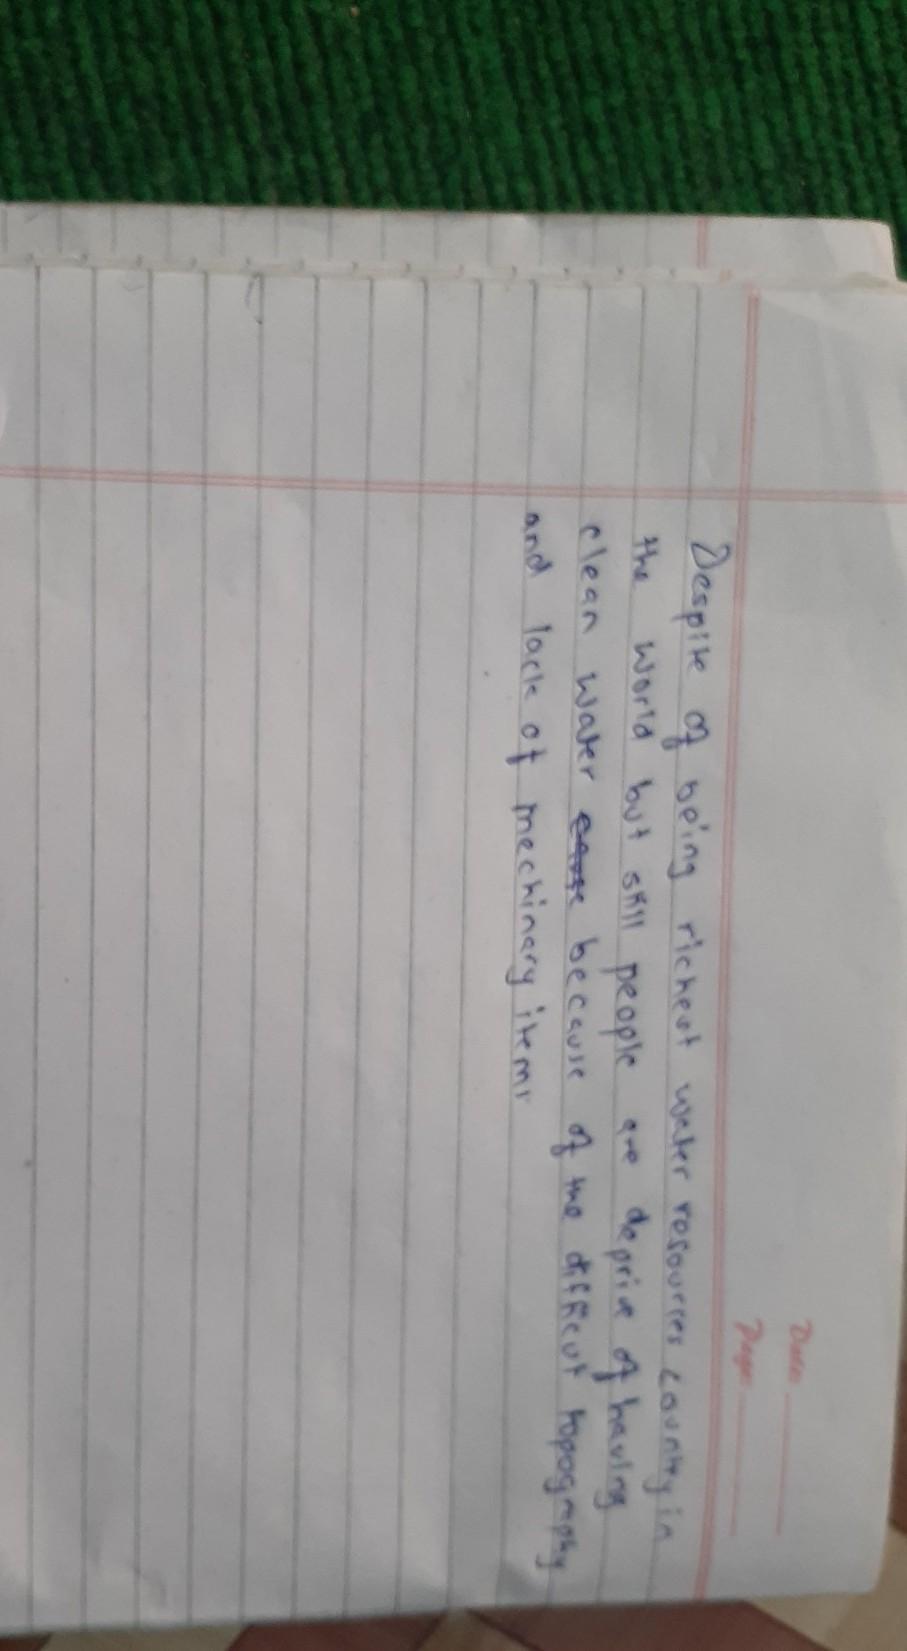 Date
Page
Despite of being richest water rosources country in
the world but still people are deprive of having
clean water because of the difficut topography
and lack of mechinary items